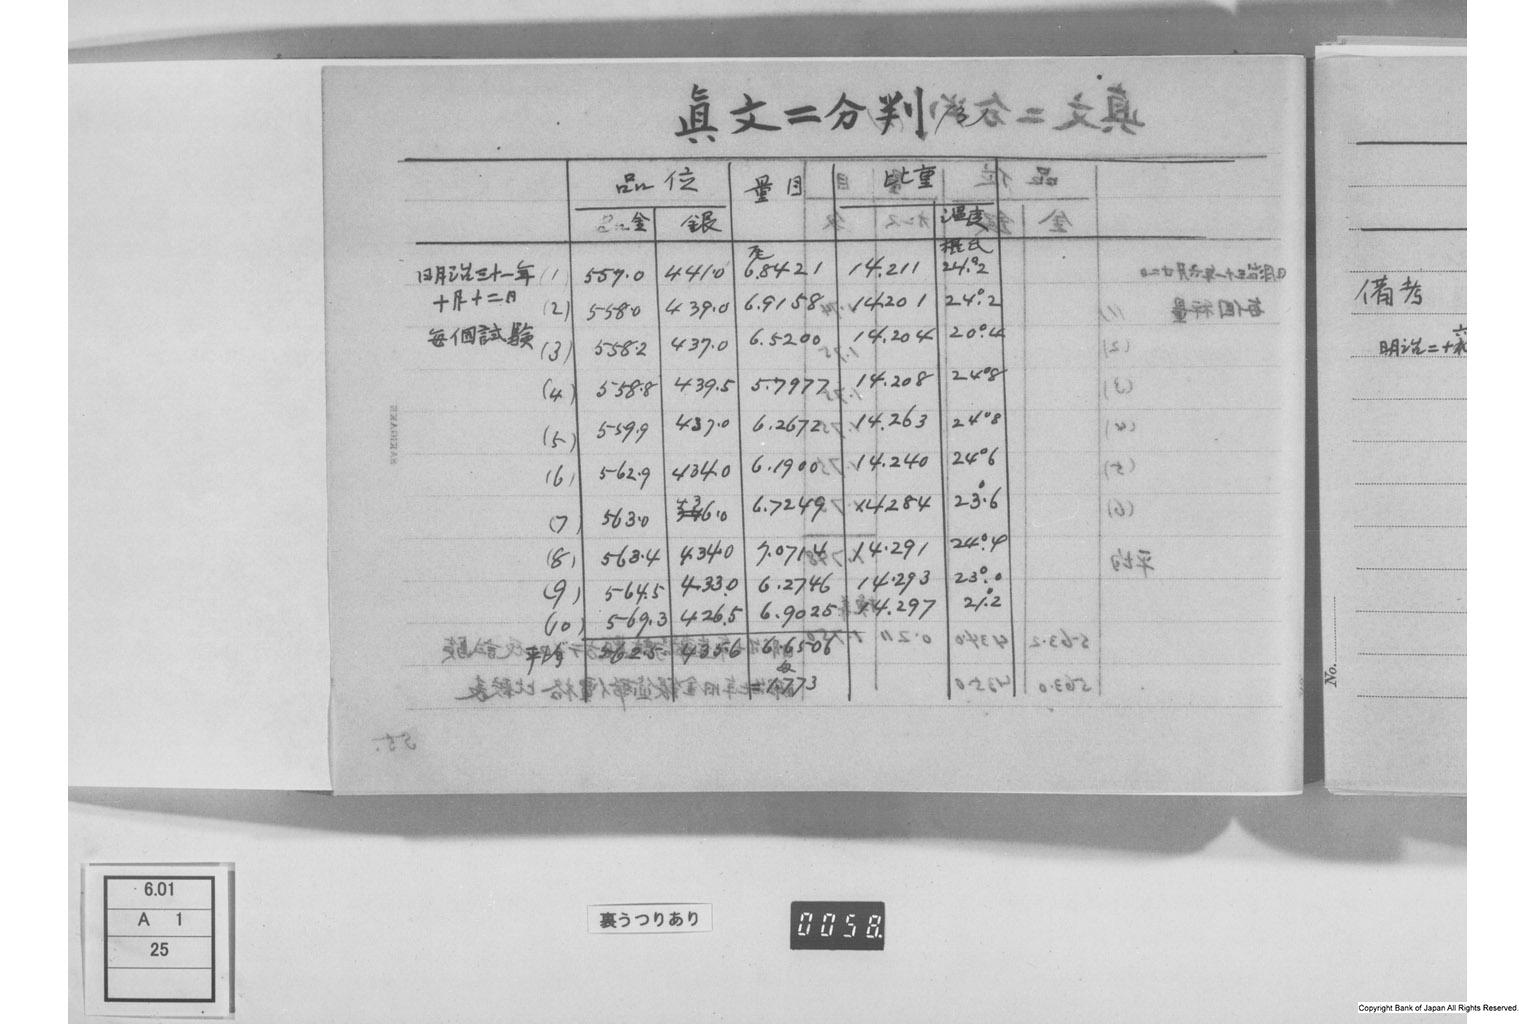 眞文二分判
品位 量目 比重
金 銀 温度
摂氏
明治三十一年 (1) 557.0 441.0 6.8421 14.211 24.°2
十月十二日 (2) 558.0 439.0 6.9158 14.201 24.°2
毎個試験 (3) 558.2 437.0 6.5200 14.204 20.°4
(4) 558.8 439.5 5.7977 14.208 24.°8
(5) 559.9 437.0 6.2672 14.263 24.°8
(6) 562.9 434.0 6.1900 14.240 24.°6
(7) 563.0 6.7249 14.284 23.°6
(8) 563.4 434.0 7.0714 14.291 24.°4
(9) 564.5 433.0 6.2746 14.293 23.°0
(10) 569.3 426.5 6.9025 14.297 21.°2
平均 562.5 435.6 6.6506
=1.773
備考
明治二十六
No.
6.01
A 1
25
裏うつりあり
0058
Copyright Bank of Japan All Rights Reserved.